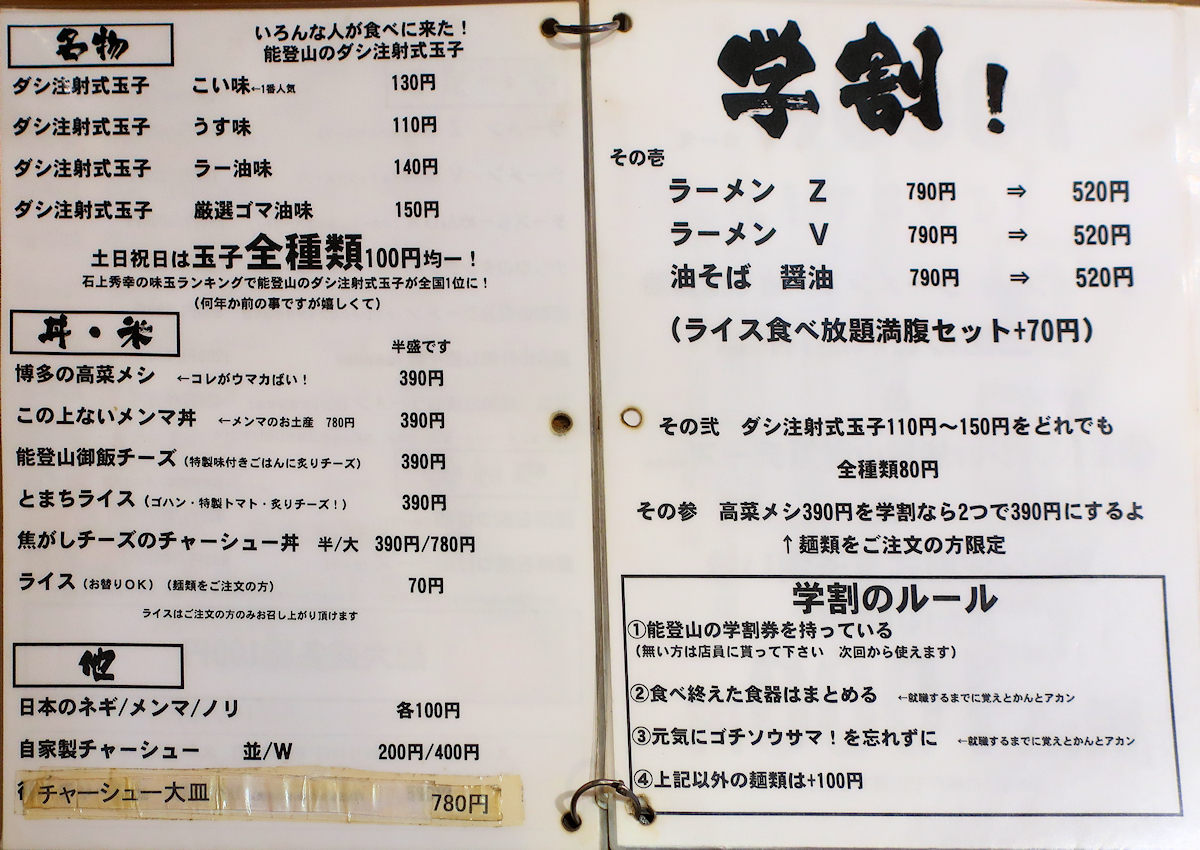 名物
いろんな人が食べに来た！
能登山のダシ注射式玉子
ダシ注射式玉子　こい味←1番人気　130円
ダシ注射式玉子　うす味　110円
ダシ注射式玉子　ラー油味　140円
ダシ注射式玉子　厳選ゴマ油味　150円
土日祝日は玉子全種類100円均一！
石上秀幸の味玉ランキングで能登山のダシ注射式玉子が全国1位に！
（何年か前の事ですが嬉しくて）
丼・米
半盛です
博多の高菜メシ　←コレがウマカばい！　390円
この上ないメンマ丼　←メンマのお土産　780円　390円
能登山御飯チーズ（特製味付きごはんに炙りチーズ）　390円
とまちライス（ゴハン・特製トマト・炙りチーズ！）　390円
焦がしチーズのチャーシュー丼　半/大　390円/780円
ライス（お替りOK）（麺類をご注文の方）　70円
ライスはご注文の方のみお召し上がり頂けます
他
日本のネギ/メンマ/ノリ　各100円
自家製チャーシュー　並/W　200円/400円
チャーシュー大皿　780円
学割！
その壱
ラーメン　Z　790円　⇒　520円
ラーメン　V　790円　⇒　520円
油そば　醤油　790円　⇒　520円
（ライス食べ放題満腹セット+70円）
その弐　ダシ注射式玉子110円～150円をどれでも
全種類80円
その参　高菜メシ390円を学割なら2つで390円にするよ
↑麺類をご注文の方限定
学割のルール
①能登山の学割券を持っている
（無い方は店員に貰って下さい　次回から使えます）
②食べ終えた食器はまとめる　←就職するまでに覚えとかんとアカン
③元気にゴチソウサマ！を忘れずに　←就職するまでに覚えとかんとアカン
④上記以外の麺類は+100円